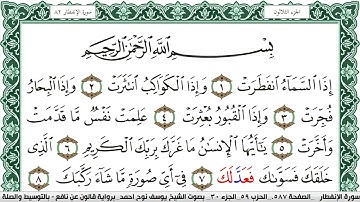 سورة الإنفطار ٨٢
الجزء الثلاثون
بِسْمِ اللَّهِ الرَّحْمَٰنِ الرَّحِيمِ
إِذَا السَّمَآءُ انفَطَرَتْ ١ وَإِذَا الْكَوَاكِبُ انتَثَرَتْ ٢ وَإِذَا الْبِحَارُ
فُجِّرَتْ ٣ وَإِذَا الْقُبُورُ بُعْثِرَتْ ٤ عَلِمَتْ نَفْسٌ مَّا قَدَّمَتْ
وَأَخَّرَتْ ٥ يَٰٓأَيُّهَا الْإِنسَٰنُ مَا غَرَّكَ بِرَبِّكَ الْكَرِيمِ ٦ الَّذِى
خَلَقَكَ فَسَوَّىٰكَ فَعَدَّلَكَ ٧ فِىٓ أَىِّ صُورَةٍ مَّا شَآءَ رَكَّبَكَ ٨
سورة الإنفطار - الصفحة ٥٨٧ - الحزب ٥٩ - الجزء ٣٠ - بصوت الشيخ يوسف نوح احمد - برواية قانون عن نافع - بالتوسيط والصلة